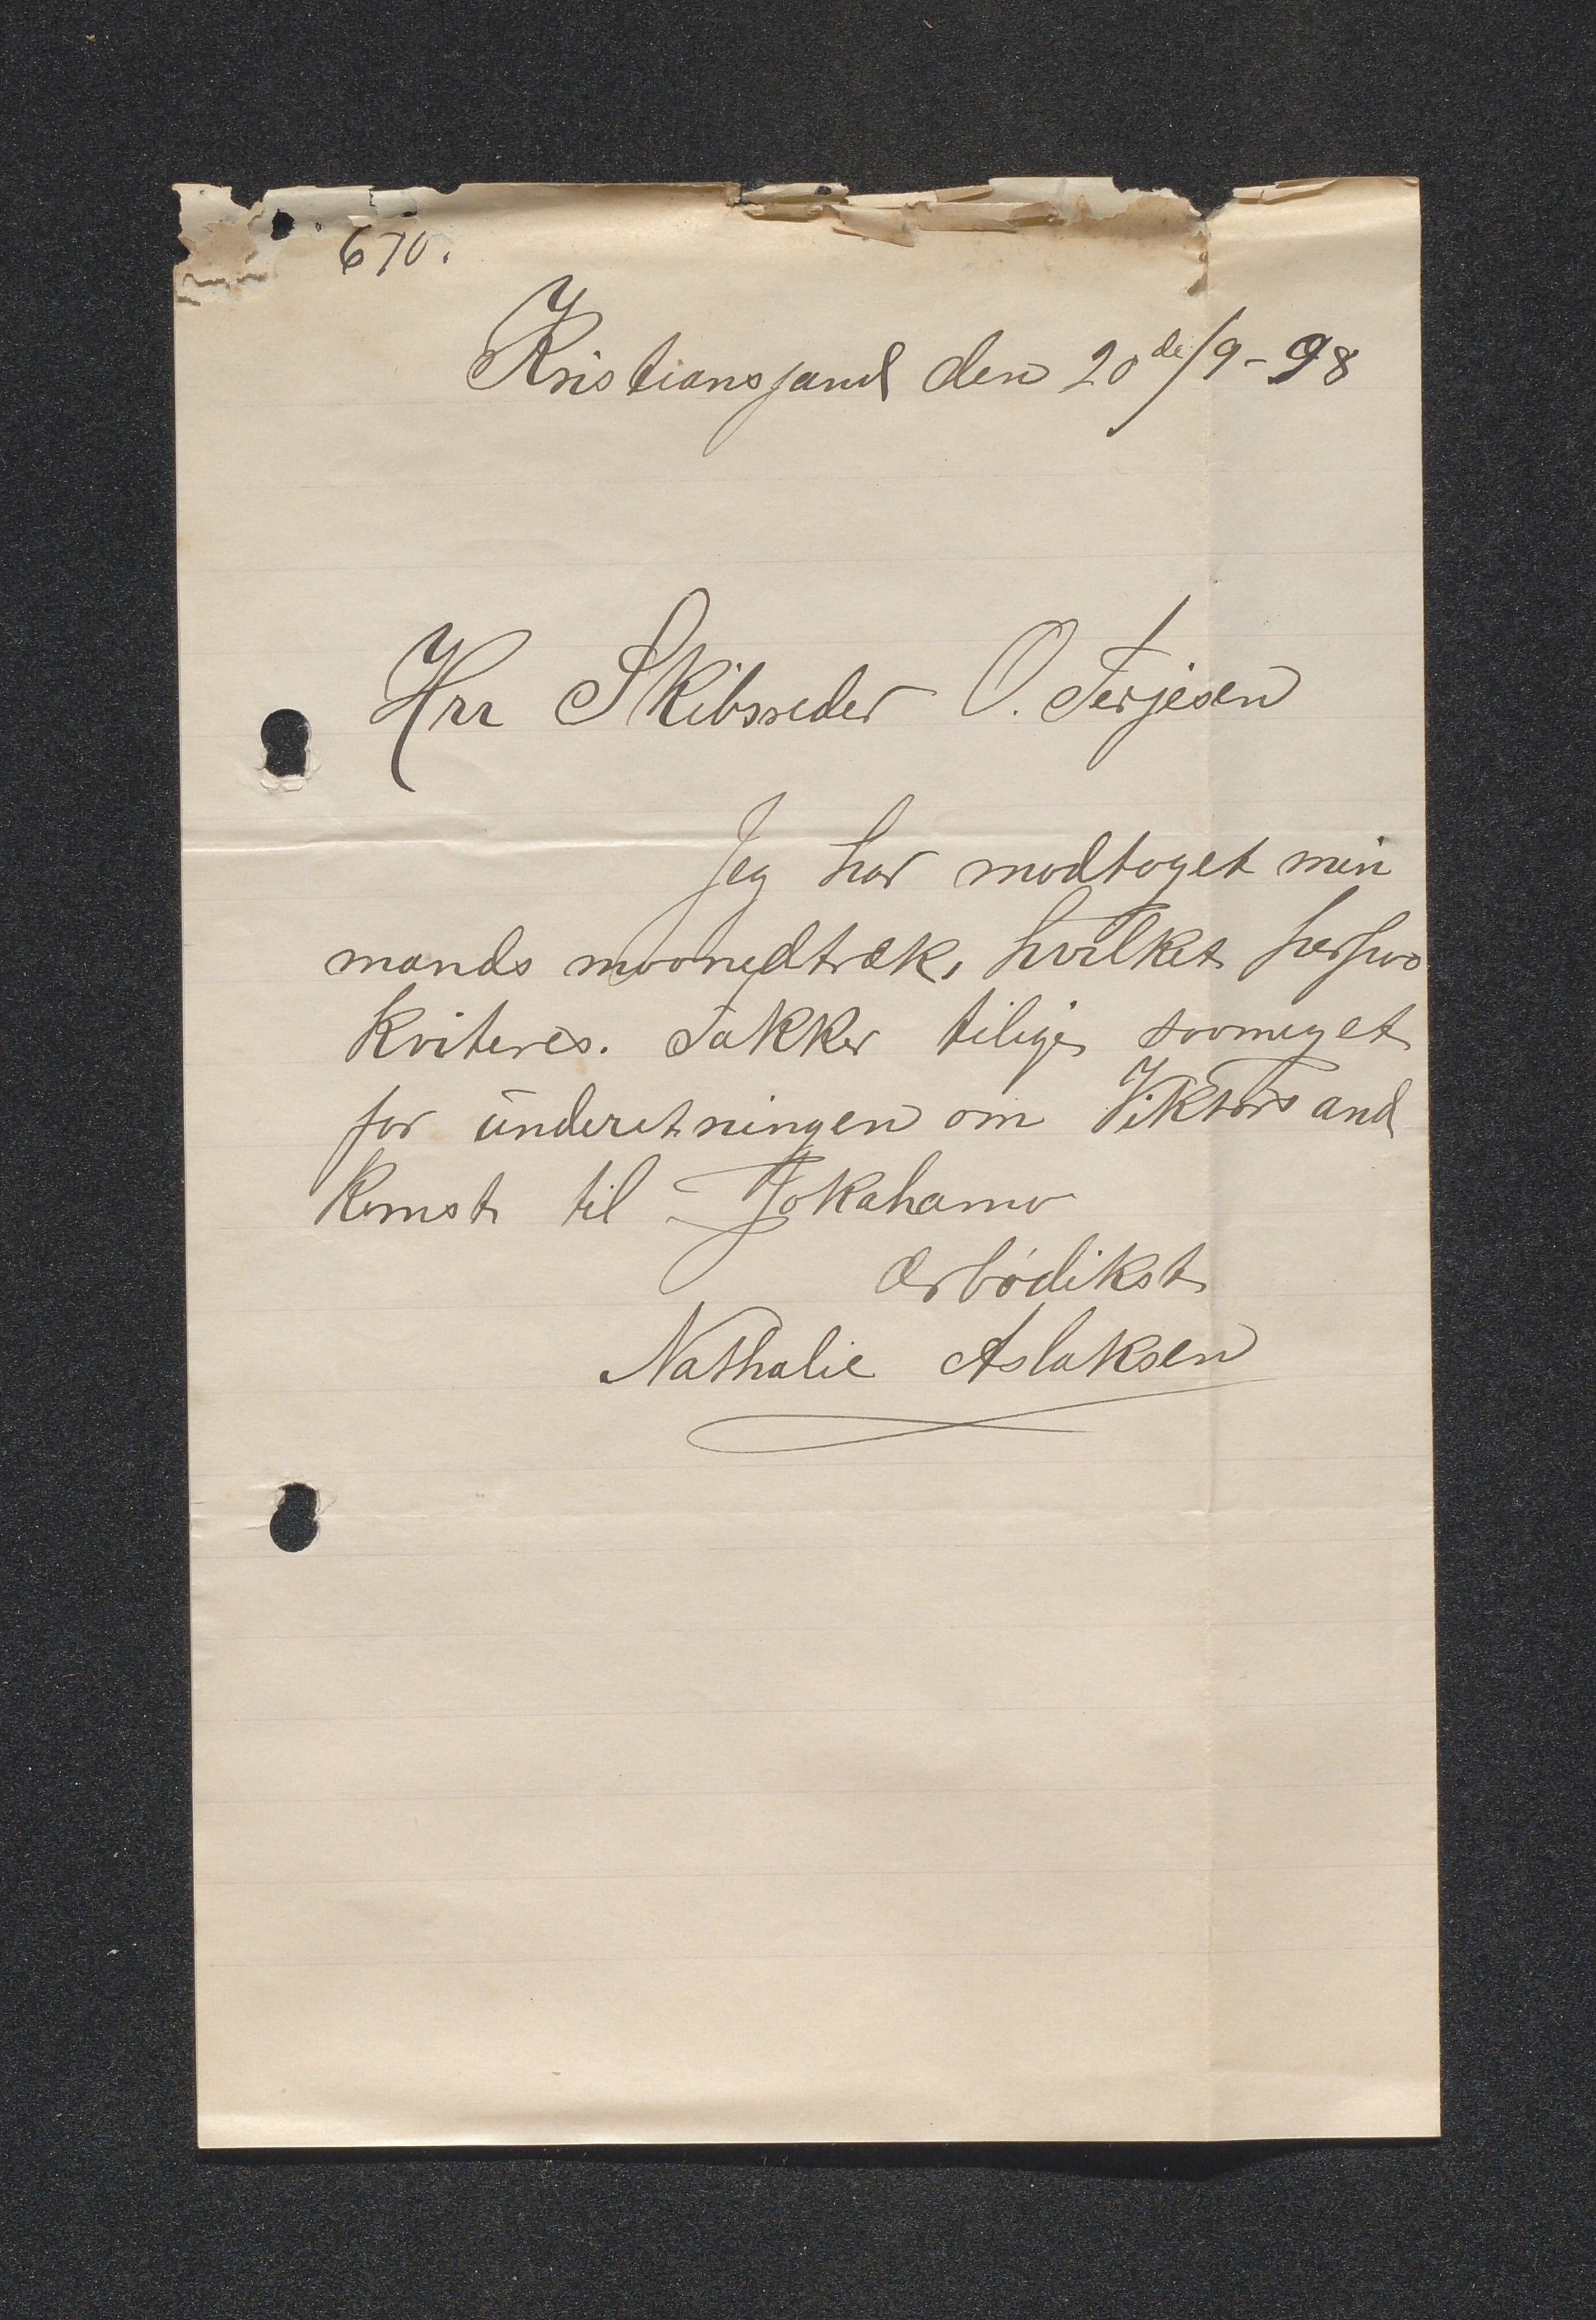 670.
Kristianssand den 20de/9-98
Hrr Skibsreder O. Terjesen
Jeg har modtaget min
mands maanedtræk, hvilket herpaa
kviteres. Takker tilige saameget
for underetningen om Viktors and
komst til Jokahama
Ærbødikst
Nathalie Aslaksen